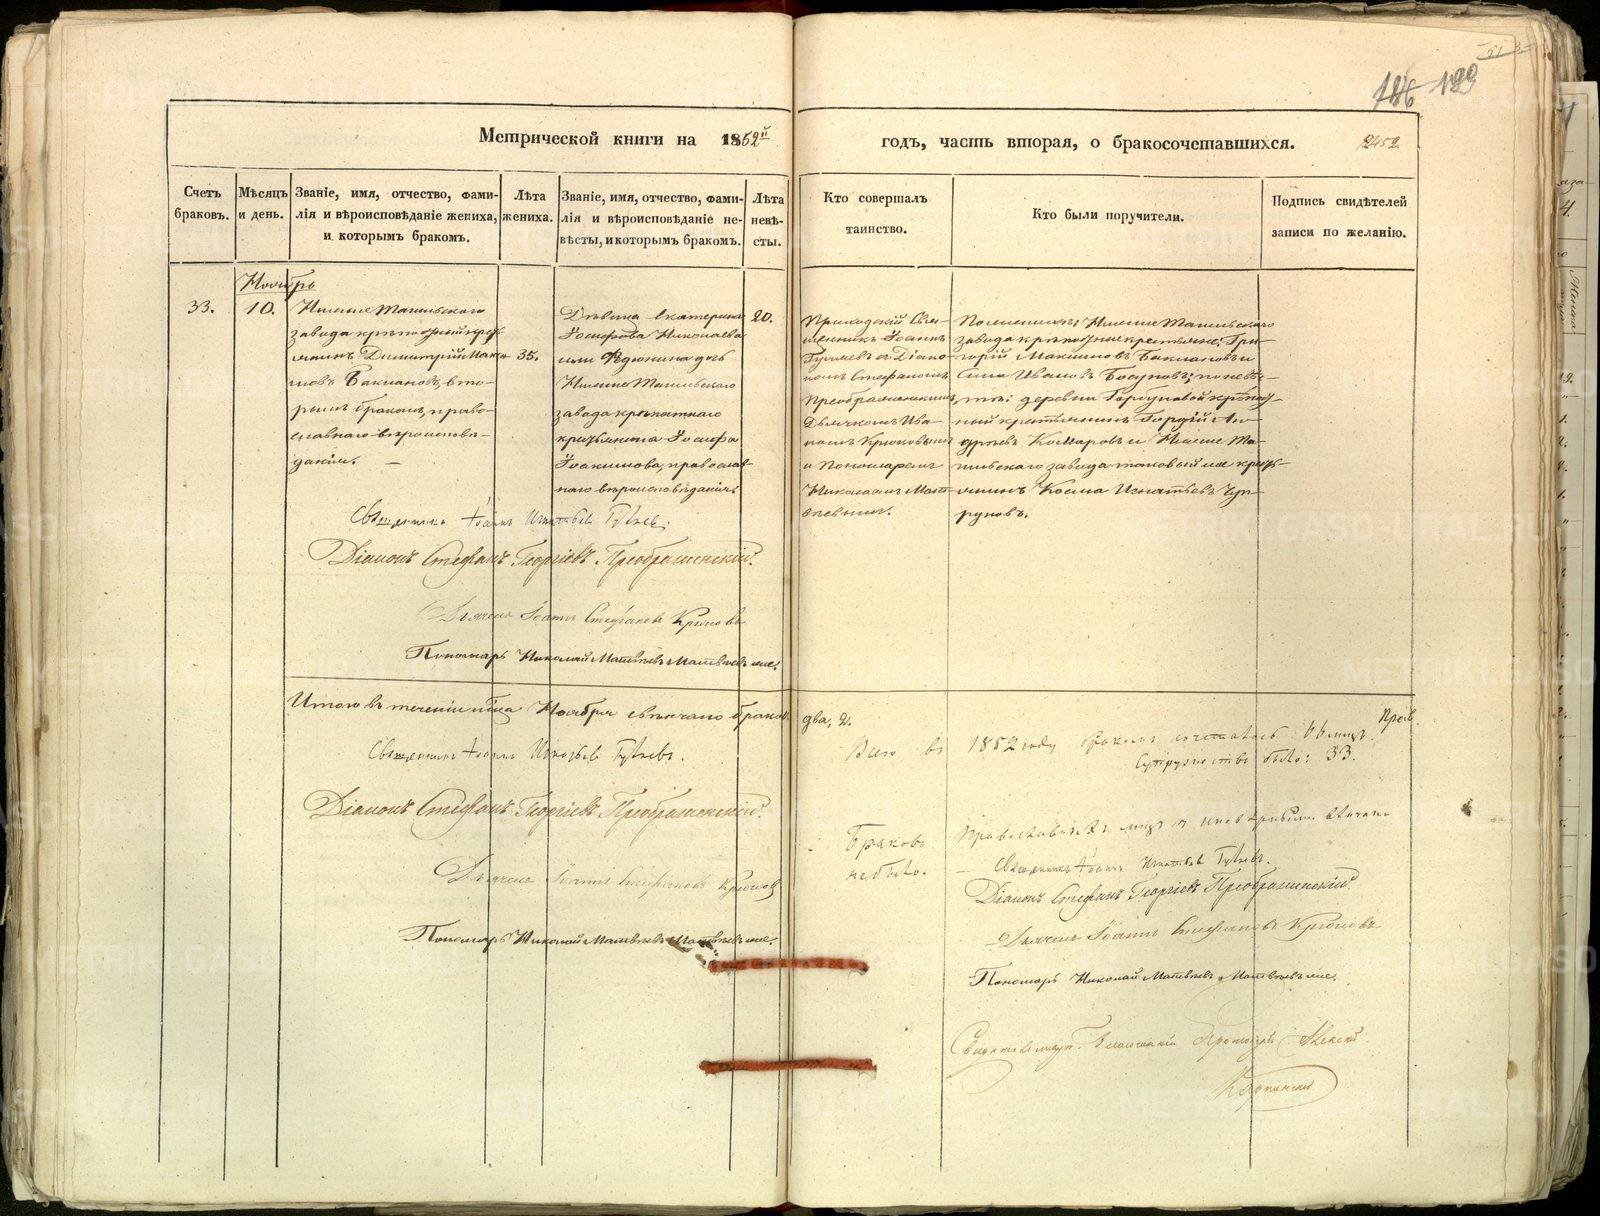 51
186 199
Метрической книги на 1852й
годъ, часть вторая, о бракосочетавшихся.
2452
Счетъ браковъ.
Мѣсяцъ и день.
Званіе, имя, отчество, фами-
лія и вѣроисповѣданіе жениха,
и которымъ бракомъ.
Лѣта
жениха.
Званіе, имя, отчество, фами-
лія и вѣроисповѣданіе не-
вѣсты, и которымъ бракомъ.
Лѣта
невѣ-
сты.
Кто совершалъ
таинство.
Кто были поручители.
Подпись свидѣтелей
записи по желанію.
Ноябрь
33.
10.
Нижне Тагильскаго
завода крѣпостный кре-
янинъ Димитрій Макси-
мовъ Баклановъ, вто-
рымъ бракомъ, право-
славнаго вѣроисповѣ-
данія.
35.
Дѣвица Екатерина
Іосифова Николаева
или Ѳедюнина дочь
Нижне Тагильскаго
завода крѣпостнаго
крестьянина Іосифа
Іоакимова, православ-
наго вѣроисповѣданія
20.
Приходскій Свя-
щенникъ Іоаннъ
съ Діако-
номъ Стефаномъ
Преображенскимъ,
Дьячкомъ Ива-
номъ Крюковымъ
и Пономаремъ
Николаемъ Мат-
вѣевымъ.
По женихѣ: Нижне Тагильскаго
завода крѣпостные крестьяне: Гри-
горій Максимовъ Баклановъ и
Ивановъ по невѣ-
стѣ: деревни Горбуновой крѣпост-
ный крестьянинъ Гордій Ан-
дреевъ Комаровъ и Нижне Та-
гильскаго завода таковый же кресть-
янинъ Косма Игнатьевъ Чуп-
руновъ.
Священникъ Іоаннъ Игнатьевъ
Діаконъ Стефанъ Георгіевъ Преображенскій.
Дьячекъ Іоаннъ Стефановъ Крюковъ
Пономарь Николай Матвѣевъ Матвѣевъ же.
Итого въ теченіи мѣсяца Ноября свѣнчано браковъ
два, 2.
Священникъ Іоаннъ Игнатьевъ
Діаконъ Стефанъ Георгіевъ Преображенскій.
Дьячекъ Іоаннъ Стефановъ Крюковъ
Пономарь Николай Матвѣевъ Матвѣевъ же.
Прав.
Всего въ 1852 году бракомъ сочеталось: 66 лицъ.
Супружествъ было: 33.
Браковъ Православныхъ лицъ съ иновѣрными вѣнчано
не было.
Священникъ Іоаннъ Игнатьевъ
Діаконъ Стефанъ Георгіевъ Преображенскій.
Дьячекъ Іоаннъ Стефановъ Крюковъ
Пономарь Николай Матвѣевъ Матвѣевъ же.
Свидѣтельствовалъ Благочинный Протоіерей Алексій
Карпинскій
METRIKI.GASO-URAL.RU